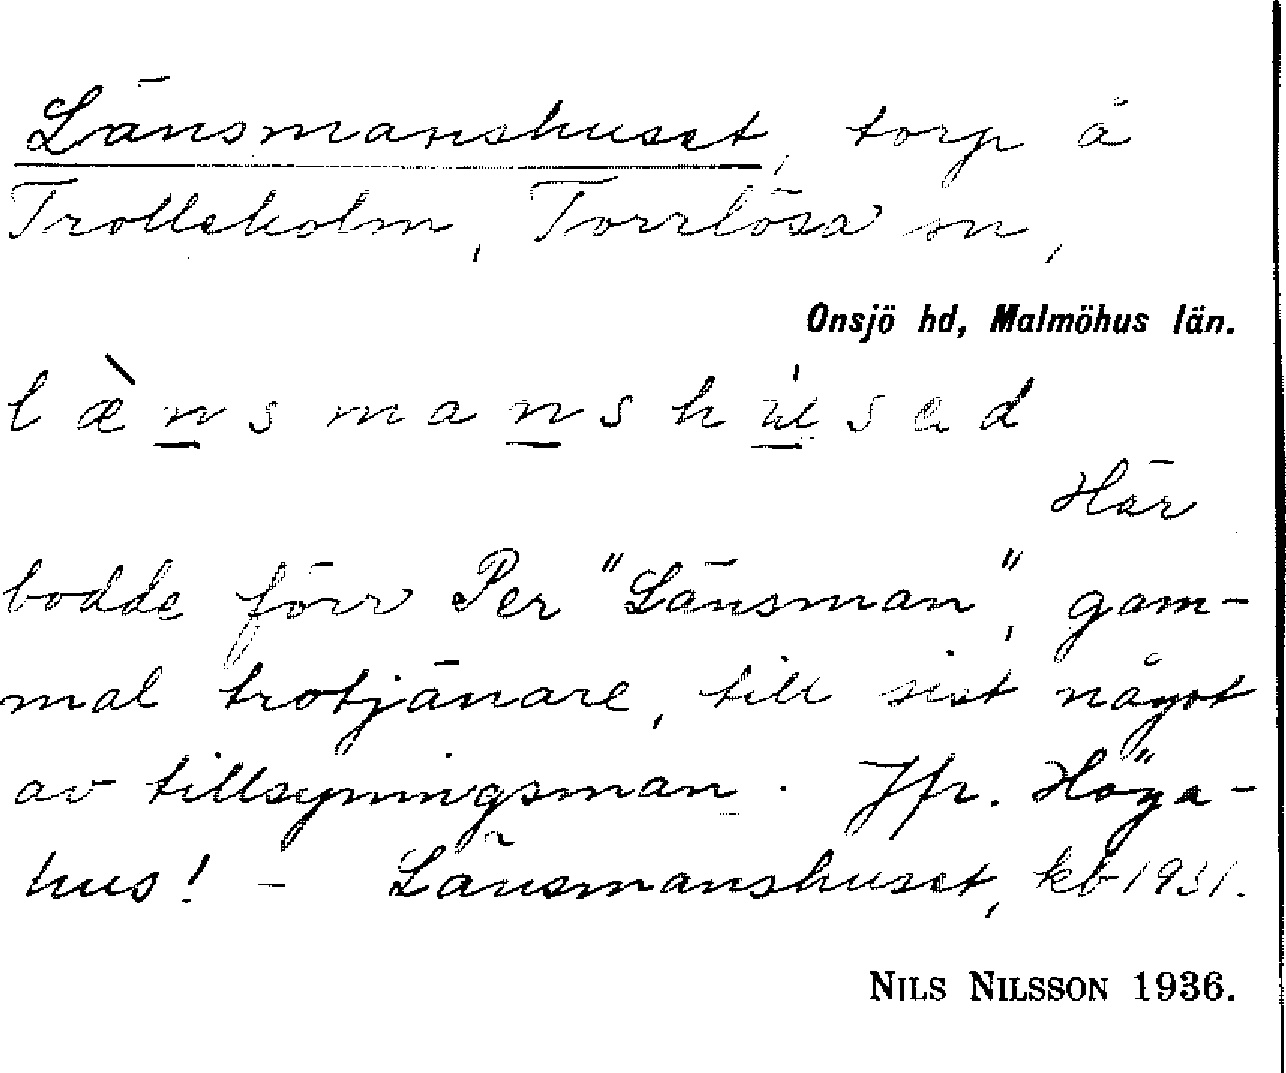 Länsmanshuset, torp å
Trolleholm, Torrlösa sn,
Onsjö hd, Malmöhus län.
læ̀nsmanshu̍sad
Här
bodde förr Per "Länsman", gam-
mal trotjänare, till sist något
av tillsyningsman. Jfr. Höga-
hus! - Länsmanshuset, kb 1931.
NILS NILSSON 1936.